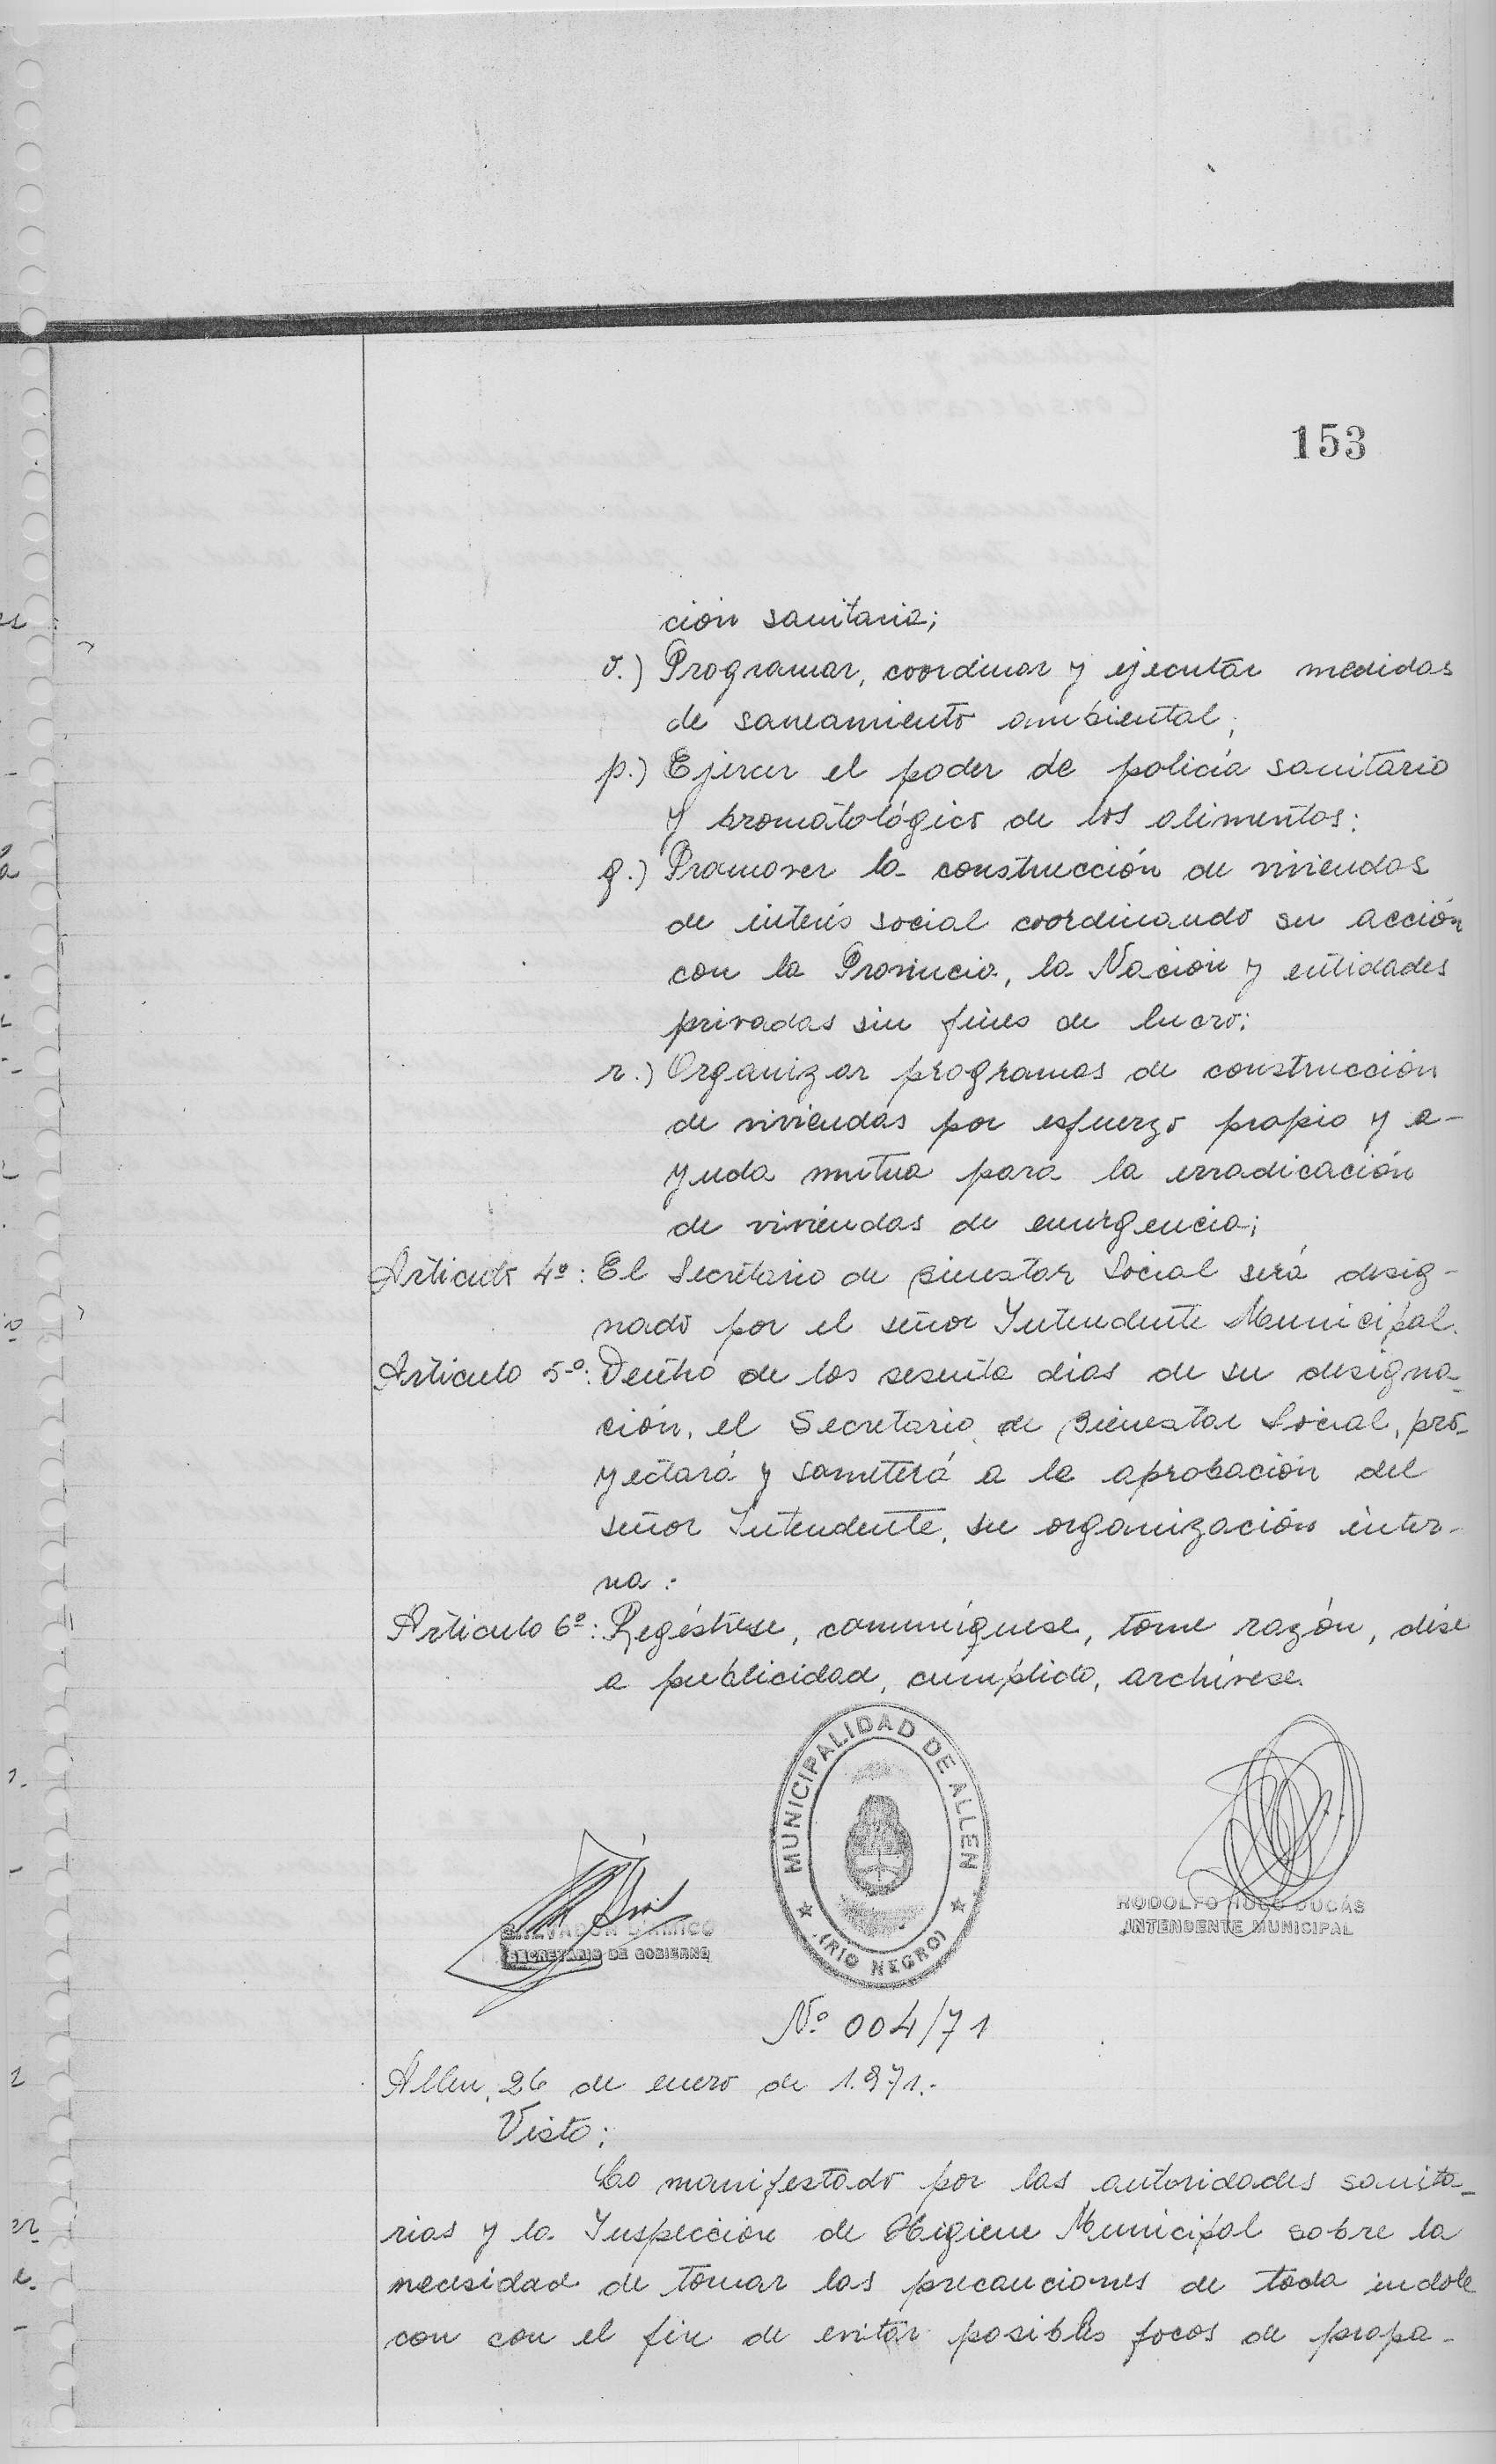 153
ción sanitaria;
o.) Programar, coordinar y ejecutar medidas
de saneamiento ambiental;
p.) Ejercer el poder de policía sanitario
y bromatológico de los alimentos;
q.) Promover la construcción de viviendas
de interés social coordinando su acción
con la Provincia, la Nación y entidades
privadas sin fines de lucro;
r.) Organizar programas de construcción
de viviendas por esfuerzo propio y a-
yuda mutua para la erradicación
de viviendas de emergencia;
Articulo 4º: El Secretario de Bienestar Social será desig-
nado por el señor Intendente Municipal.
Articulo 5º: Dentro de los sesenta dias de su designa-
ción, el Secretario de Bienestar Social, pro-
yectará y someterá a la aprobación del
señor Intendente, su organización inter-
na.
Articulo 6º: Regístrese, comuníquese, tome razón, dése
a publicidad, cumplido, archívese.
MUNICIPALIDAD DE ALLEN
(RIO NEGRO)
SALVADOR D'AMICO
SECRETARIO DE GOBIERNO
RODOLFO HUGO DUCÁS
INTENDENTE MUNICIPAL
Nº 004/71
Allen, 26 de enero de 1.971.-
Visto:
Lo manifestado por las autoridades sanita-
rias y la Inspección de Higiene Municipal sobre la
necesidad de tomar las precauciones de toda indole
con con el fin de evitar posibles focos de propa-